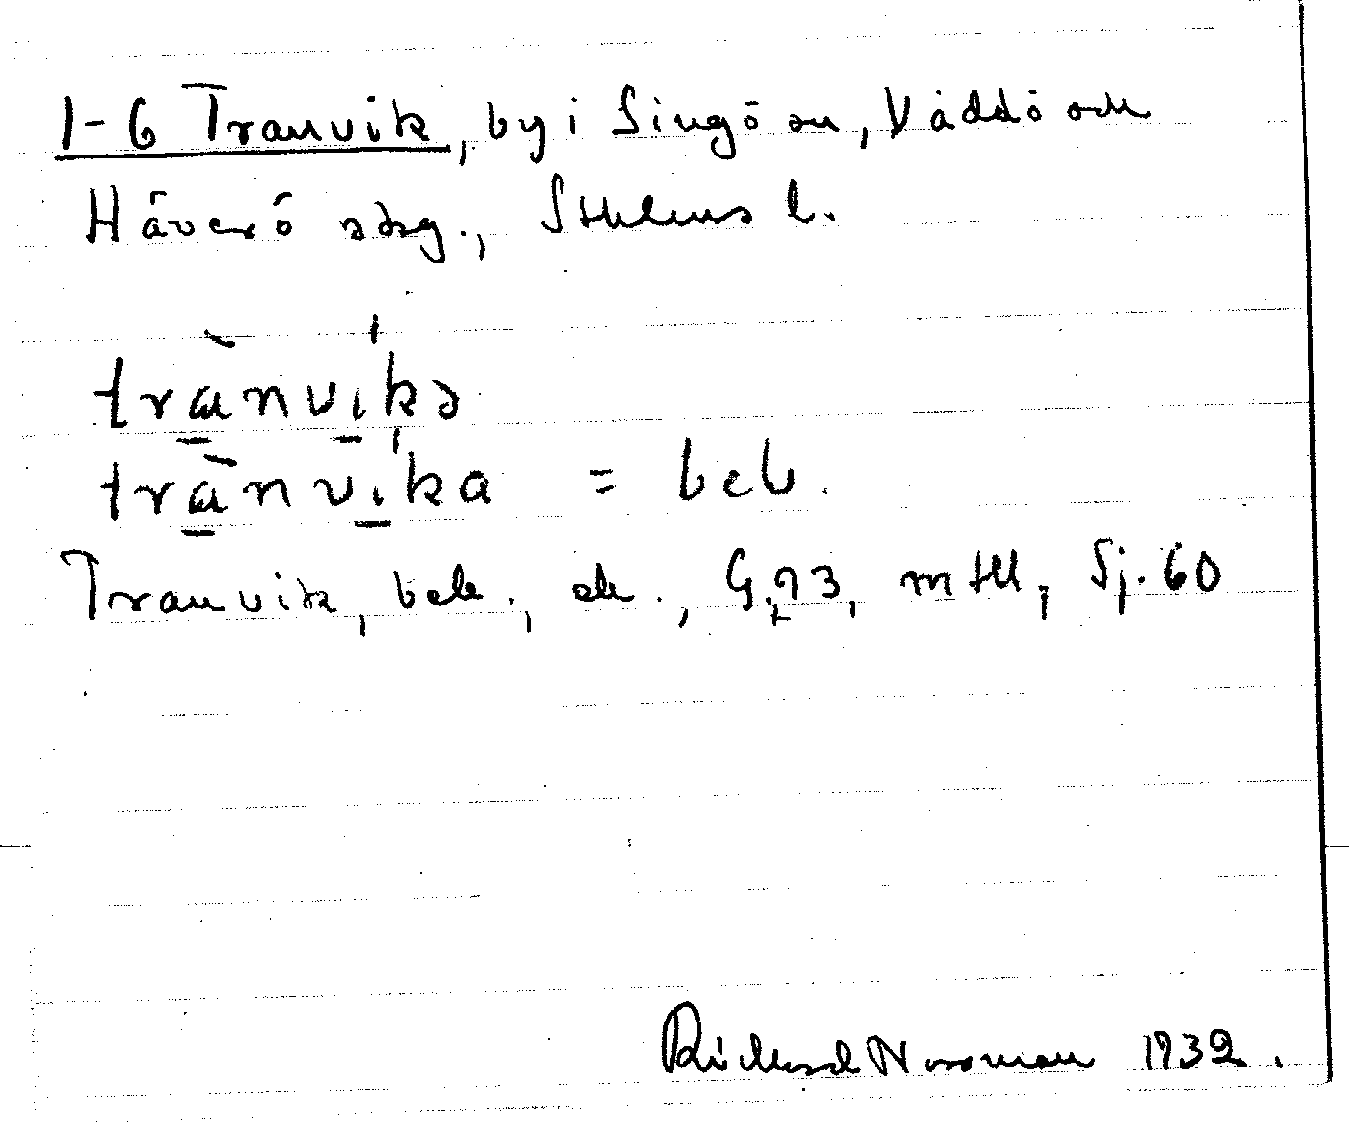 1-6 Tranvik, by i Singö sn, Väddö och
Häverö sdsg., Sthlms l.
trànvíkə
trànvíka = beb.
Tranvik, beb., ek., G.93, mtll, Sj. 60
Richard Norrman 1932.